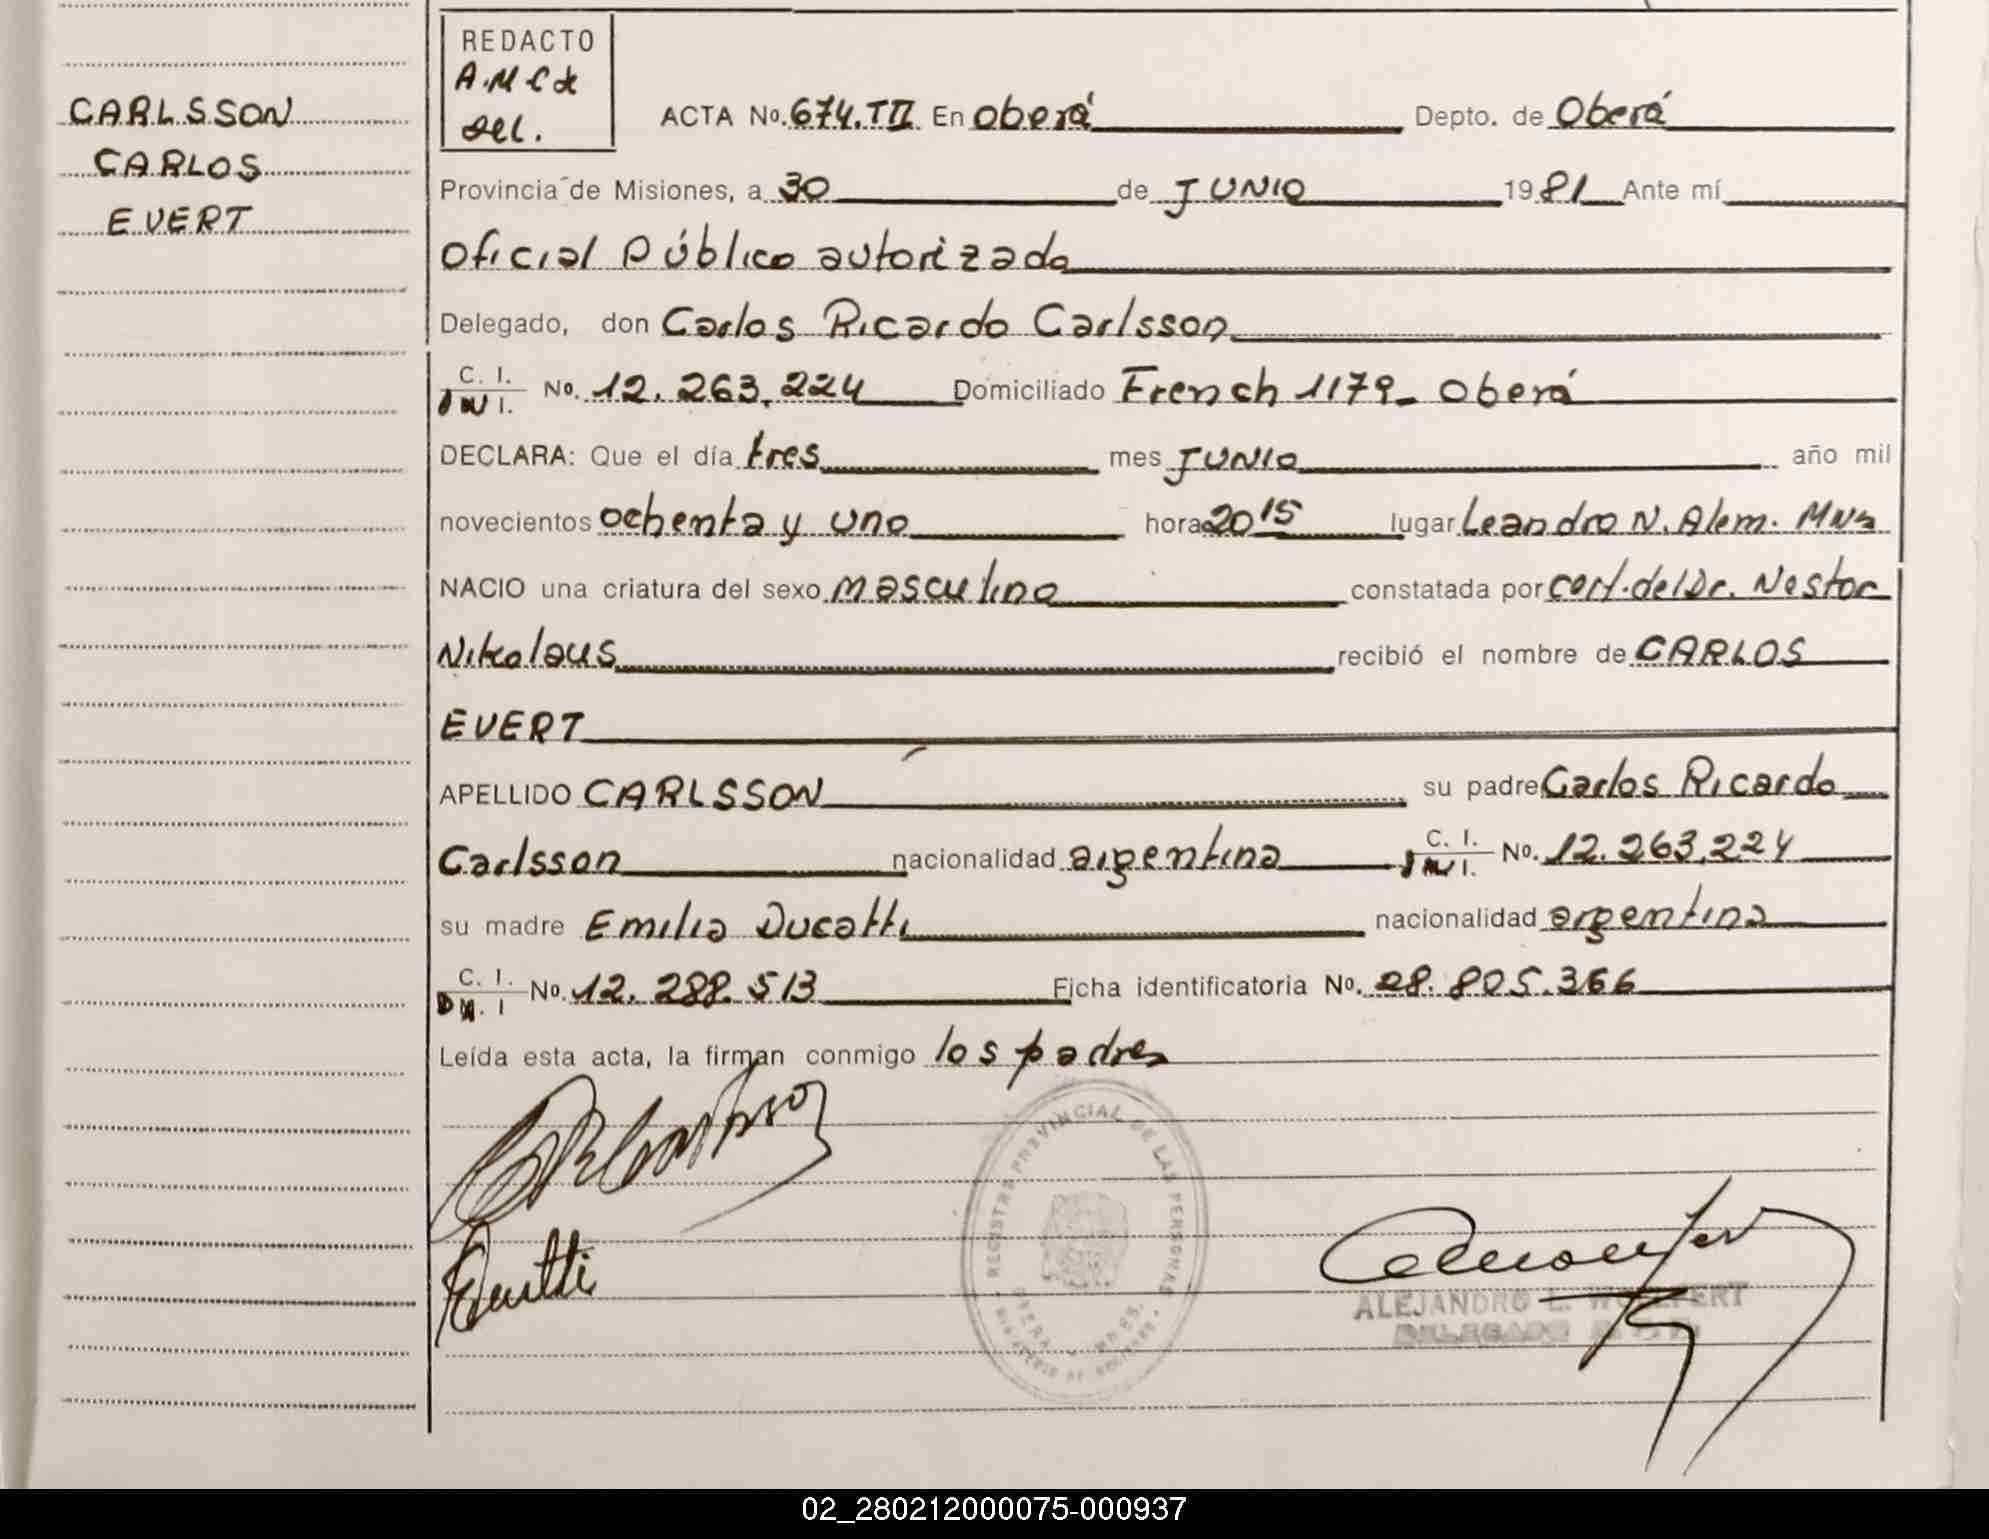 CARLSSON
CARLOS
EVERT
REDACTO
A.M C de
del.
ACTA No. 674.TII En Oberá Depto. de Oberá
Provincia de Misiones, a 30 de JUNIO 1981 Ante mí
Oficial Público autorizado
Delegado, don Carlos Ricardo Carlsson
C. I. No. 12.263.224 Domiciliado French 1179- Oberá
DECLARA: Que el día tres mes JUNIO año mil
novecientos ochenta y uno hora 20 15 lugar Leandro N. Alem. Mnes
NACIO una criatura del sexo masculino constatada por cert. del Dr. Nestor
Nikolaus recibió el nombre de CARLOS
EVERT
APELLIDO CARLSSON su padre Carlos Ricardo
Carlsson nacionalidad argentina C. I. No. 12.263.224
su madre Emilia Ducatti nacionalidad argentina
C. I. No. 12.288.513 Ficha identificatoria No. 28.805.366
Leída esta acta, la firman conmigo los padres
REGISTRO PROVINCIAL DE LAS PERSONAS
OBERA
ALEJANDRO L. WOLFERT
DELEGADO
02_280212000075-000937